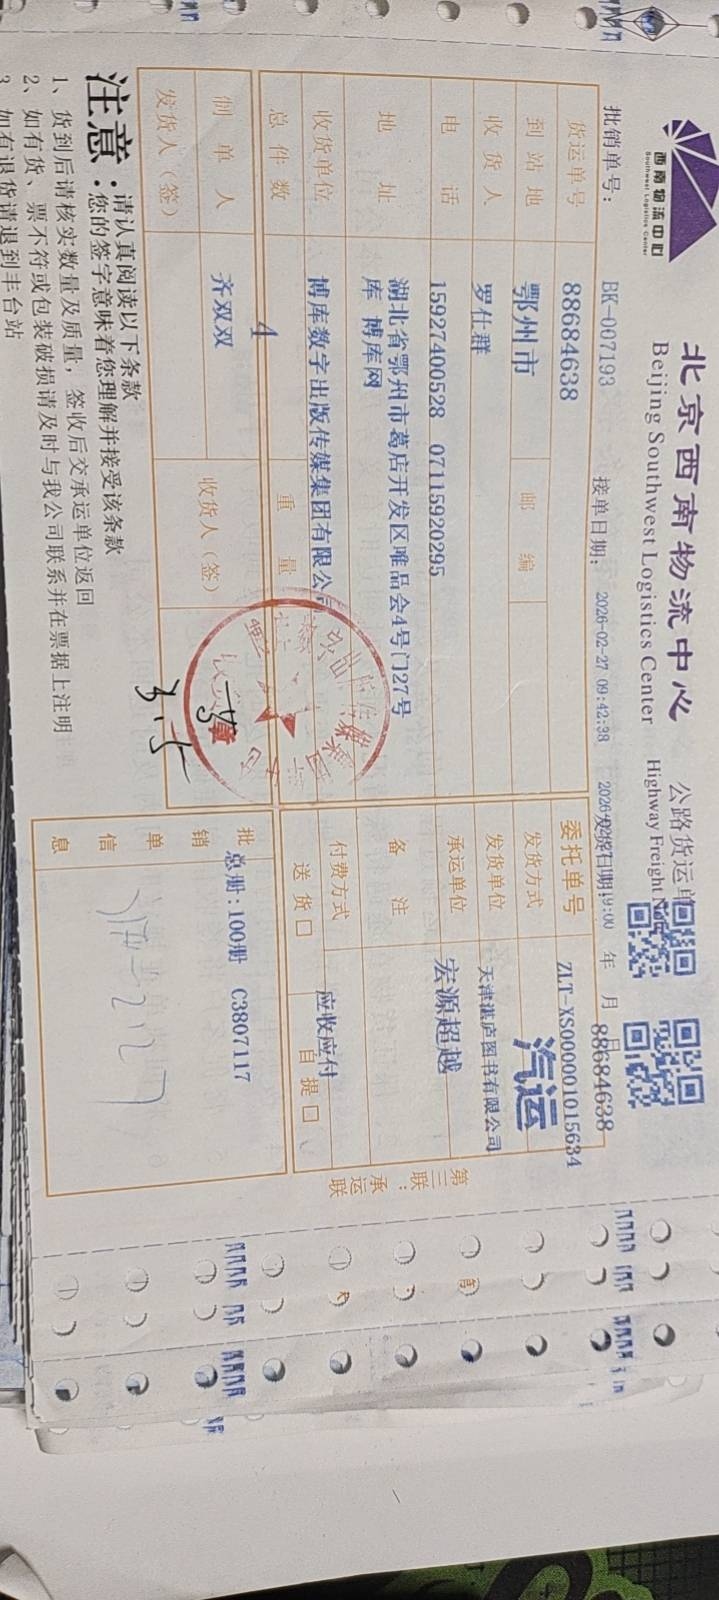 西南物流中心
Southwest Logistics Center
北京西南物流中心 公路货运单
Beijing Southwest Logistics Center Highway Freight
批销单号: BK-007193 接单日期: 2026-02-27 09:42:38 年 月 日
88684638
货运单号 88684638 委托单号 ZLT-XS000001015634
到站地 鄂州市 邮编 发货方式 汽运
收货人 罗仕群 发货单位 天津湛庐图书有限公司
电话 15927400528 07115920295 承运单位 宏源超越
地址 湖北省鄂州市葛店开发区唯品会4号门27号
库 博库网
备注
收货单位 博库数字出版传媒集团有限公司 付费方式 应收应付
总件数 4 重量 送货口 自提口
制单人 齐双双 收货人(签)
发货人(签)
批销单信息 总册:100册 C3807117
第三联:承运联
注意:请认真阅读以下条款
您的签字意味着您理解并接受该条款
1、货到后请核实数量及质量,签收后交承运单位返回
2、如有货、票不符或包装破损请及时与我公司联系并在票据上注明
3、如有退货请退到丰台站